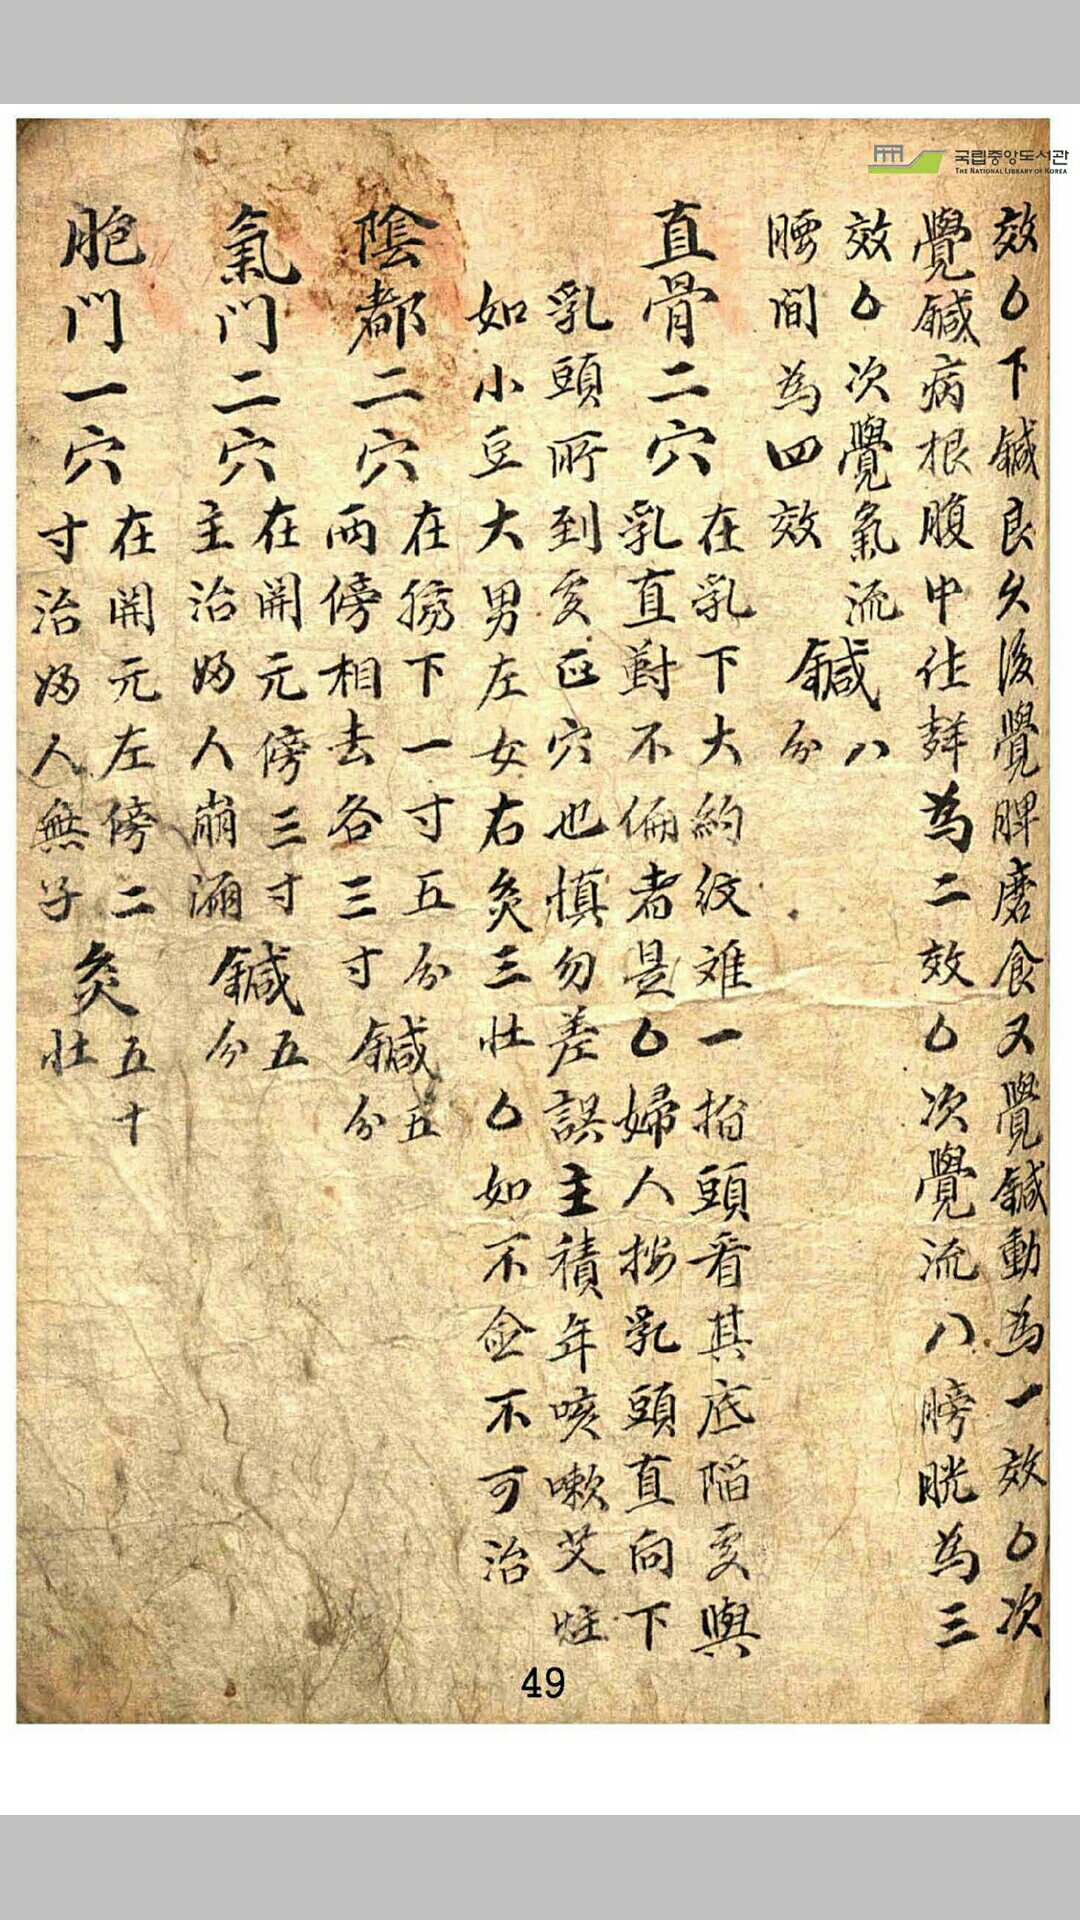 국립중앙도서관
THE NATIONAL LIBRARY OF KOREA
效○下鍼良久後覺脾磨食又覺鍼動為一效○次
覺鍼病根腹中仕鉡為二效○次覺流八膀胱為三
效○次覺氣流
腰間為四效
鍼八
分
直骨二穴
在乳下大約紋难一指頭看其底陷㝊與
乳直對不偏者是○婦人按乳頭直向下
乳頭所到㝊正穴也慎勿差誤主積年咳嗽艾炷
如小豆大男左女右灸三壯○如不僉不可治
陰都二穴
在臍下一寸五分
兩傍相去各三寸
鍼五
分
氣門二穴
在開元傍三寸
主治婦人崩漏
鍼五
分
胞門一穴
在開元左傍二
寸治婦人無子
灸五十
壯
49